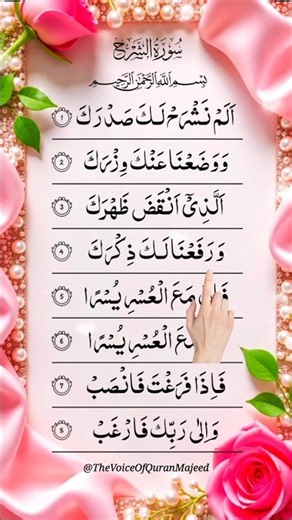 سُوْرَةُ الشَّرْحِ
بِسْمِ اللّٰهِ الرَّحْمٰنِ الرَّحِيْمِ
اَلَمْ نَشْرَحْ لَكَ صَدْرَكَ 1
وَوَضَعْنَا عَنْكَ وِزْرَكَ 2
الَّذِیْۤ اَنْقَضَ ظَهْرَكَ 3
وَ رَفَعْنَا لَكَ ذِكْرَكَ 4
فَاِنَّ مَعَ الْعُسْرِ یُسْرًا 5
مَعَ الْعُسْرِ یُسْرًا 6
فَاِذَا فَرَغْتَ فَانْصَبْ 7
وَاِلٰی رَبِّكَ فَارْغَبْ 8
@TheVoiceOfQuranMajeed